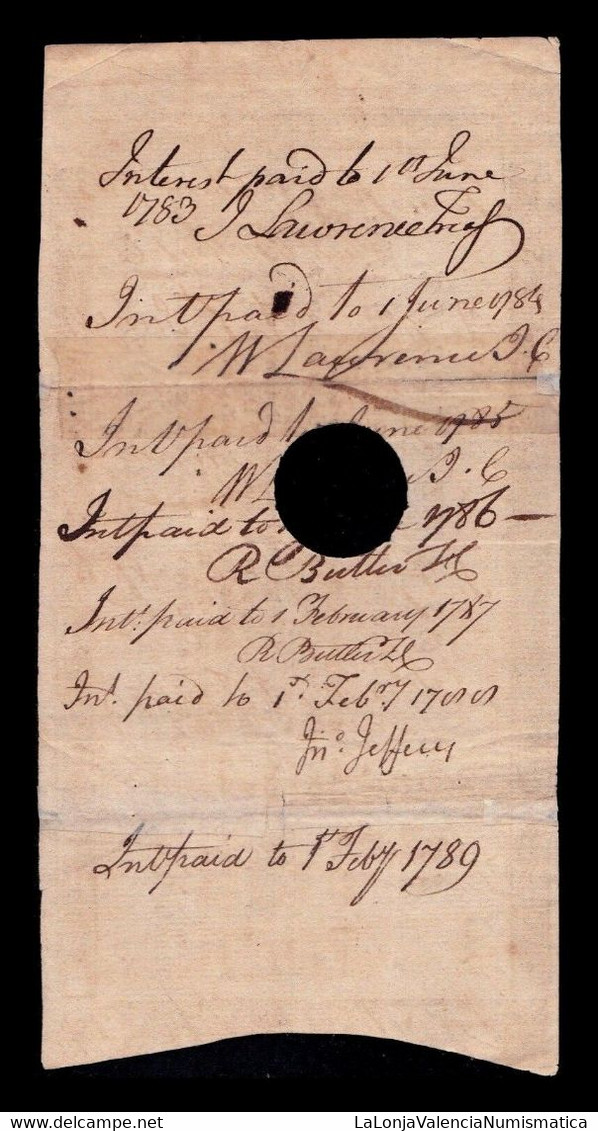 Interest paid to 1st June
1783 J Lawrence Treas
Int paid to 1 June 1784
W Lawrence J. C
Int paid June 1785
W L J. C
Int paid to 1786 —
R Butler
Int. paid to 1 February 1787
R Butler
Int. paid to 1st. Febry 1788
Jno. Jeffery
Int paid to 1st Feby 1789
www.delcampe.net
LaLonjaValenciaNumismatica